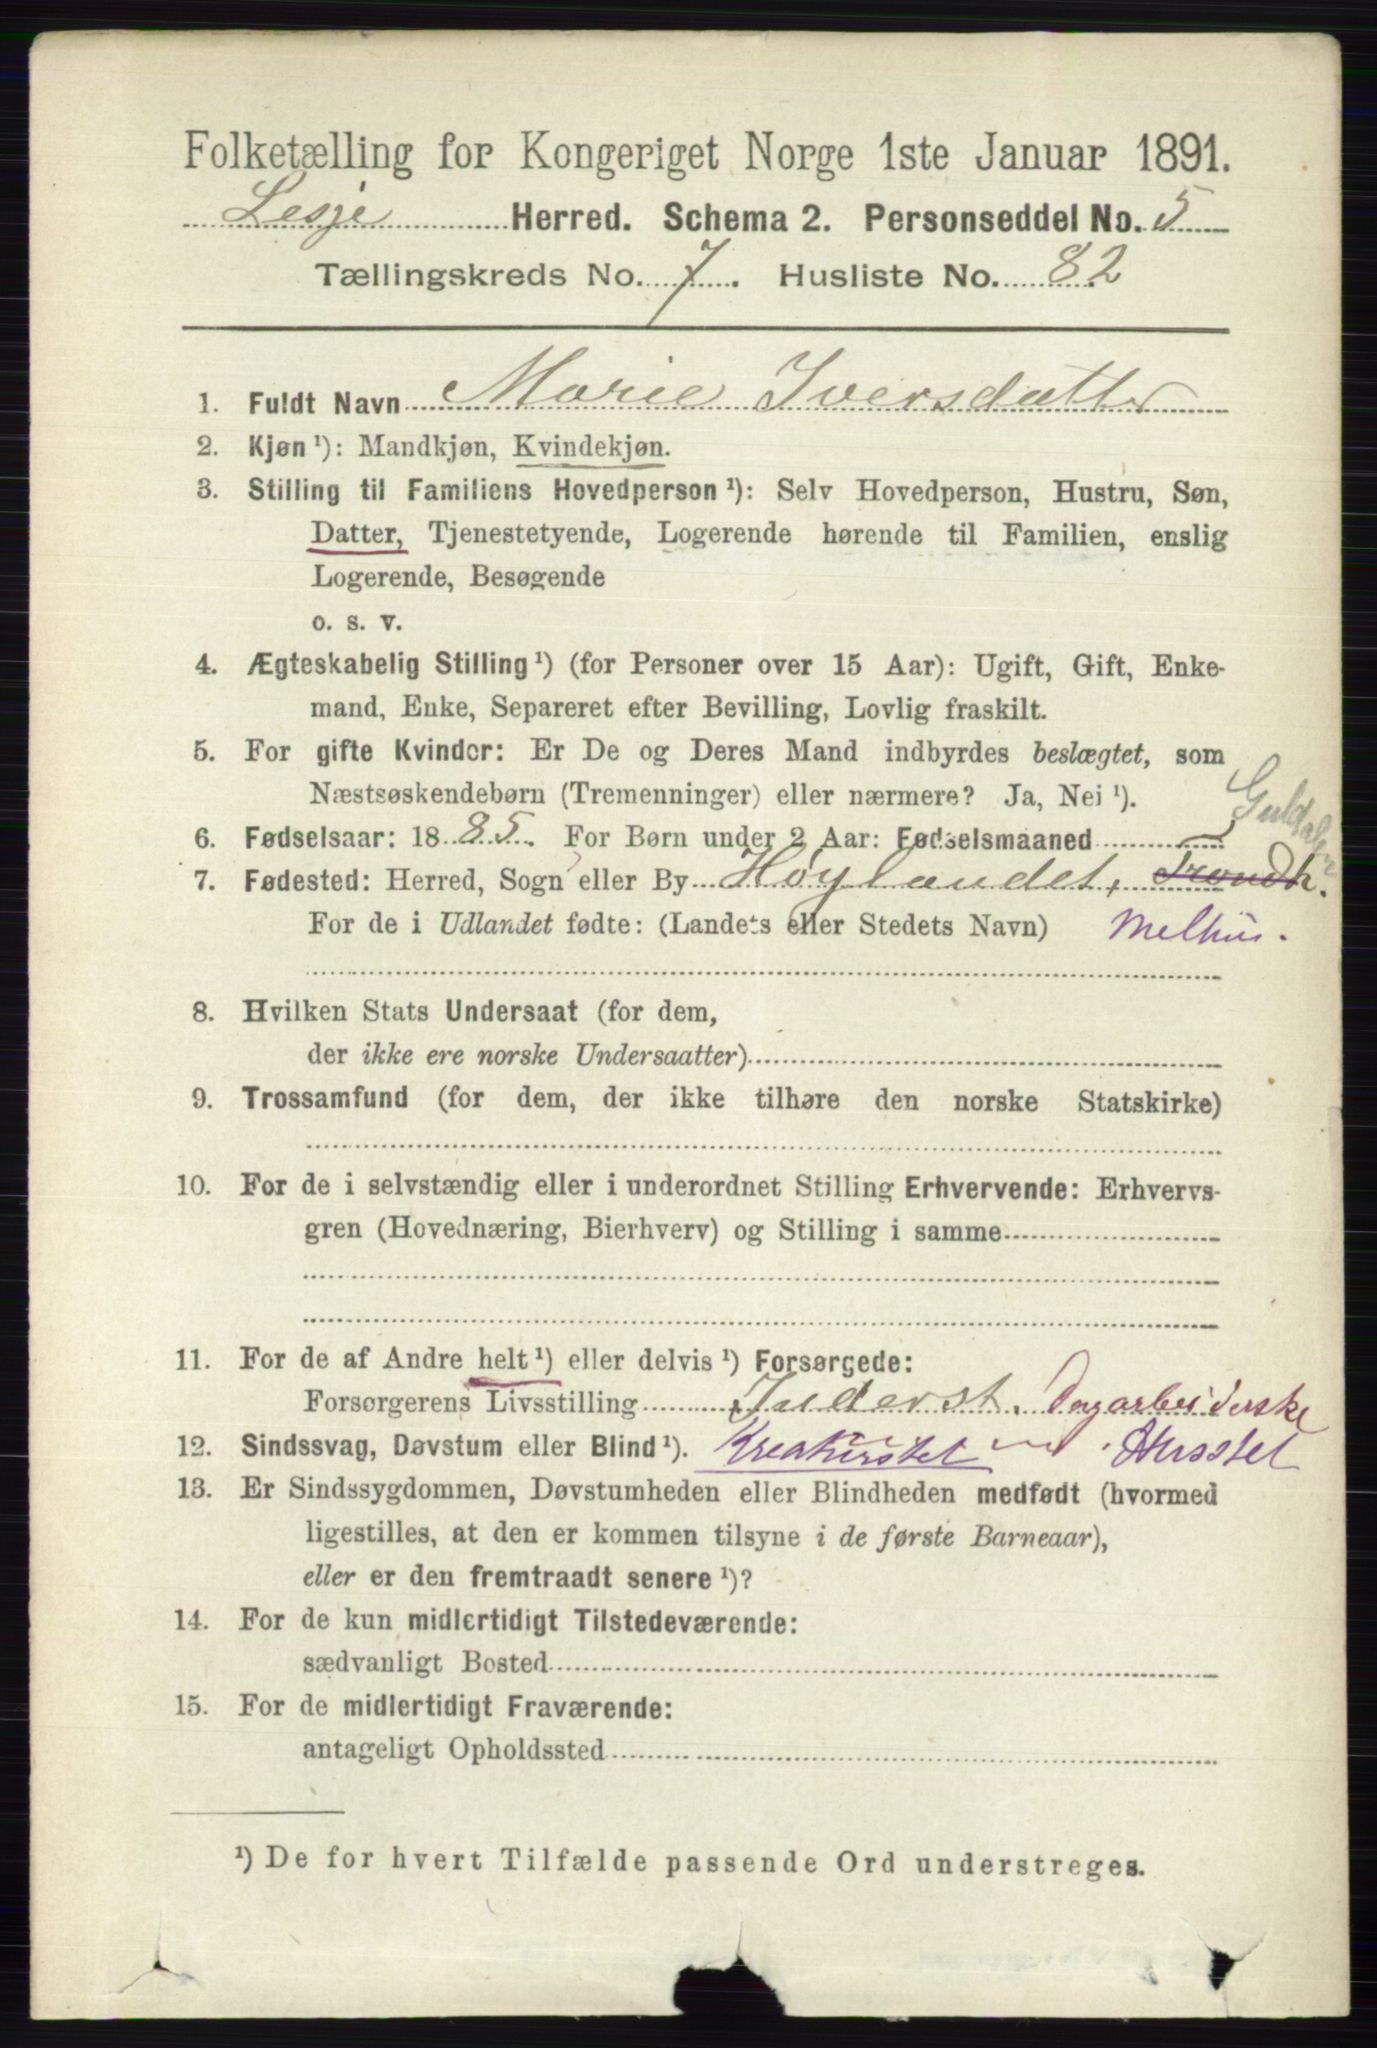 Folketælling for Kongeriget Norge 1ste Januar 1891.
Lesje Herred. Schema 2. Personseddel No. 5
Tællingskreds No. 7. Husliste No. 82
1. Fuldt Navn Marie Iversdatter
2. Kjøn ¹): Mandkjøn, Kvindekjøn.
3. Stilling til Familiens Hovedperson ¹): Selv Hovedperson, Hustru, Søn,
Datter, Tjenestetyende, Logerende hørende til Familien, enslig
Logerende, Besøgende
o. s. v.
4. Ægteskabelig Stilling ¹) (for Personer over 15 Aar): Ugift, Gift, Enke-
mand, Enke, Separeret efter Bevilling, Lovlig fraskilt.
5. For gifte Kvinder: Er De og Deres Mand indbyrdes beslægtet, som
Næstsøskendebørn (Tremenninger) eller nærmere? Ja, Nei ¹).
6. Fødselsaar: 1885. For Børn under 2 Aar: Fødselsmaaned
7. Fødested: Herred, Sogn eller By Høylandet, Trondh.
For de i Udlandet fødte: (Landets eller Stedets Navn) Melhus.
8. Hvilken Stats Undersaat (for dem,
der ikke ere norske Undersaatter)
9. Trossamfund (for dem, der ikke tilhøre den norske Statskirke)
10. For de i selvstændig eller i underordnet Stilling Erhvervende: Erhvervs-
gren (Hovednæring, Bierhverv) og Stilling i samme
11. For de af Andre helt ¹) eller delvis ¹) Forsørgede:
Forsørgerens Livsstilling Inderst. Dagarbeiderske
12. Sindssvag, Døvstum eller Blind ¹). Kreaturstel Husstel
13. Er Sindssygdommen, Døvstumheden eller Blindheden medfødt (hvormed
ligestilles, at den er kommen tilsyne i de første Barneaar),
eller er den fremtraadt senere ¹)?
14. For de kun midlertidigt Tilstedeværende:
sædvanligt Bosted
15. For de midlertidigt Fraværende:
antageligt Opholdssted
¹) De for hvert Tilfælde passende Ord understreges.